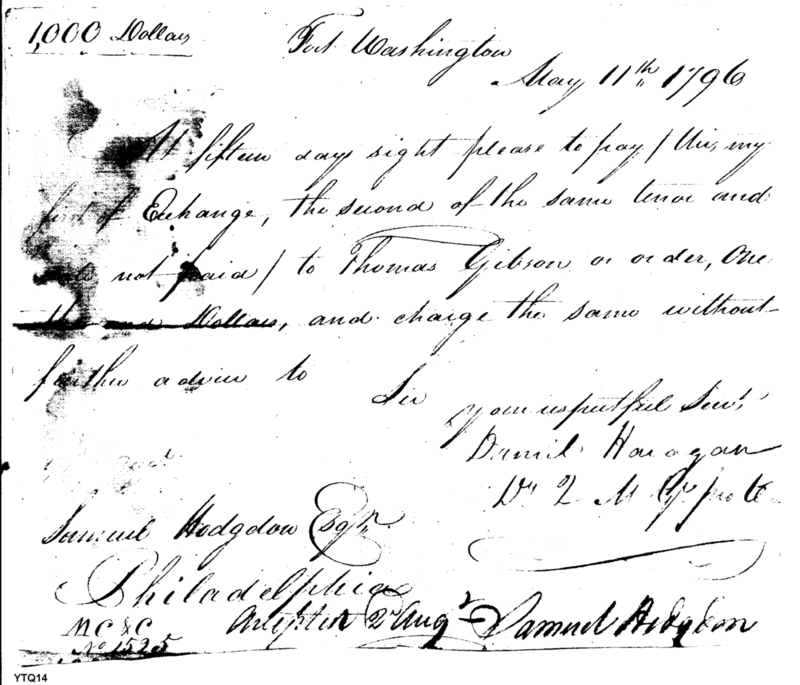 1,000 Dollars
Fort Washington
May 11th 1796
At fifteen days sight please to pay / this, my
first of Exchange, the second of the same tenor and
date not paid / to Thomas Gibson or order, One
thousand Dollars, and charge the same without
further advice to
Sir
your respectful Servt
Daniel
D Q M
Samuel Hodgdon Esqr
Philadelphia
MC&C
No 1525
Accepted 2d Augt Samuel Hodgdon
YTQ14